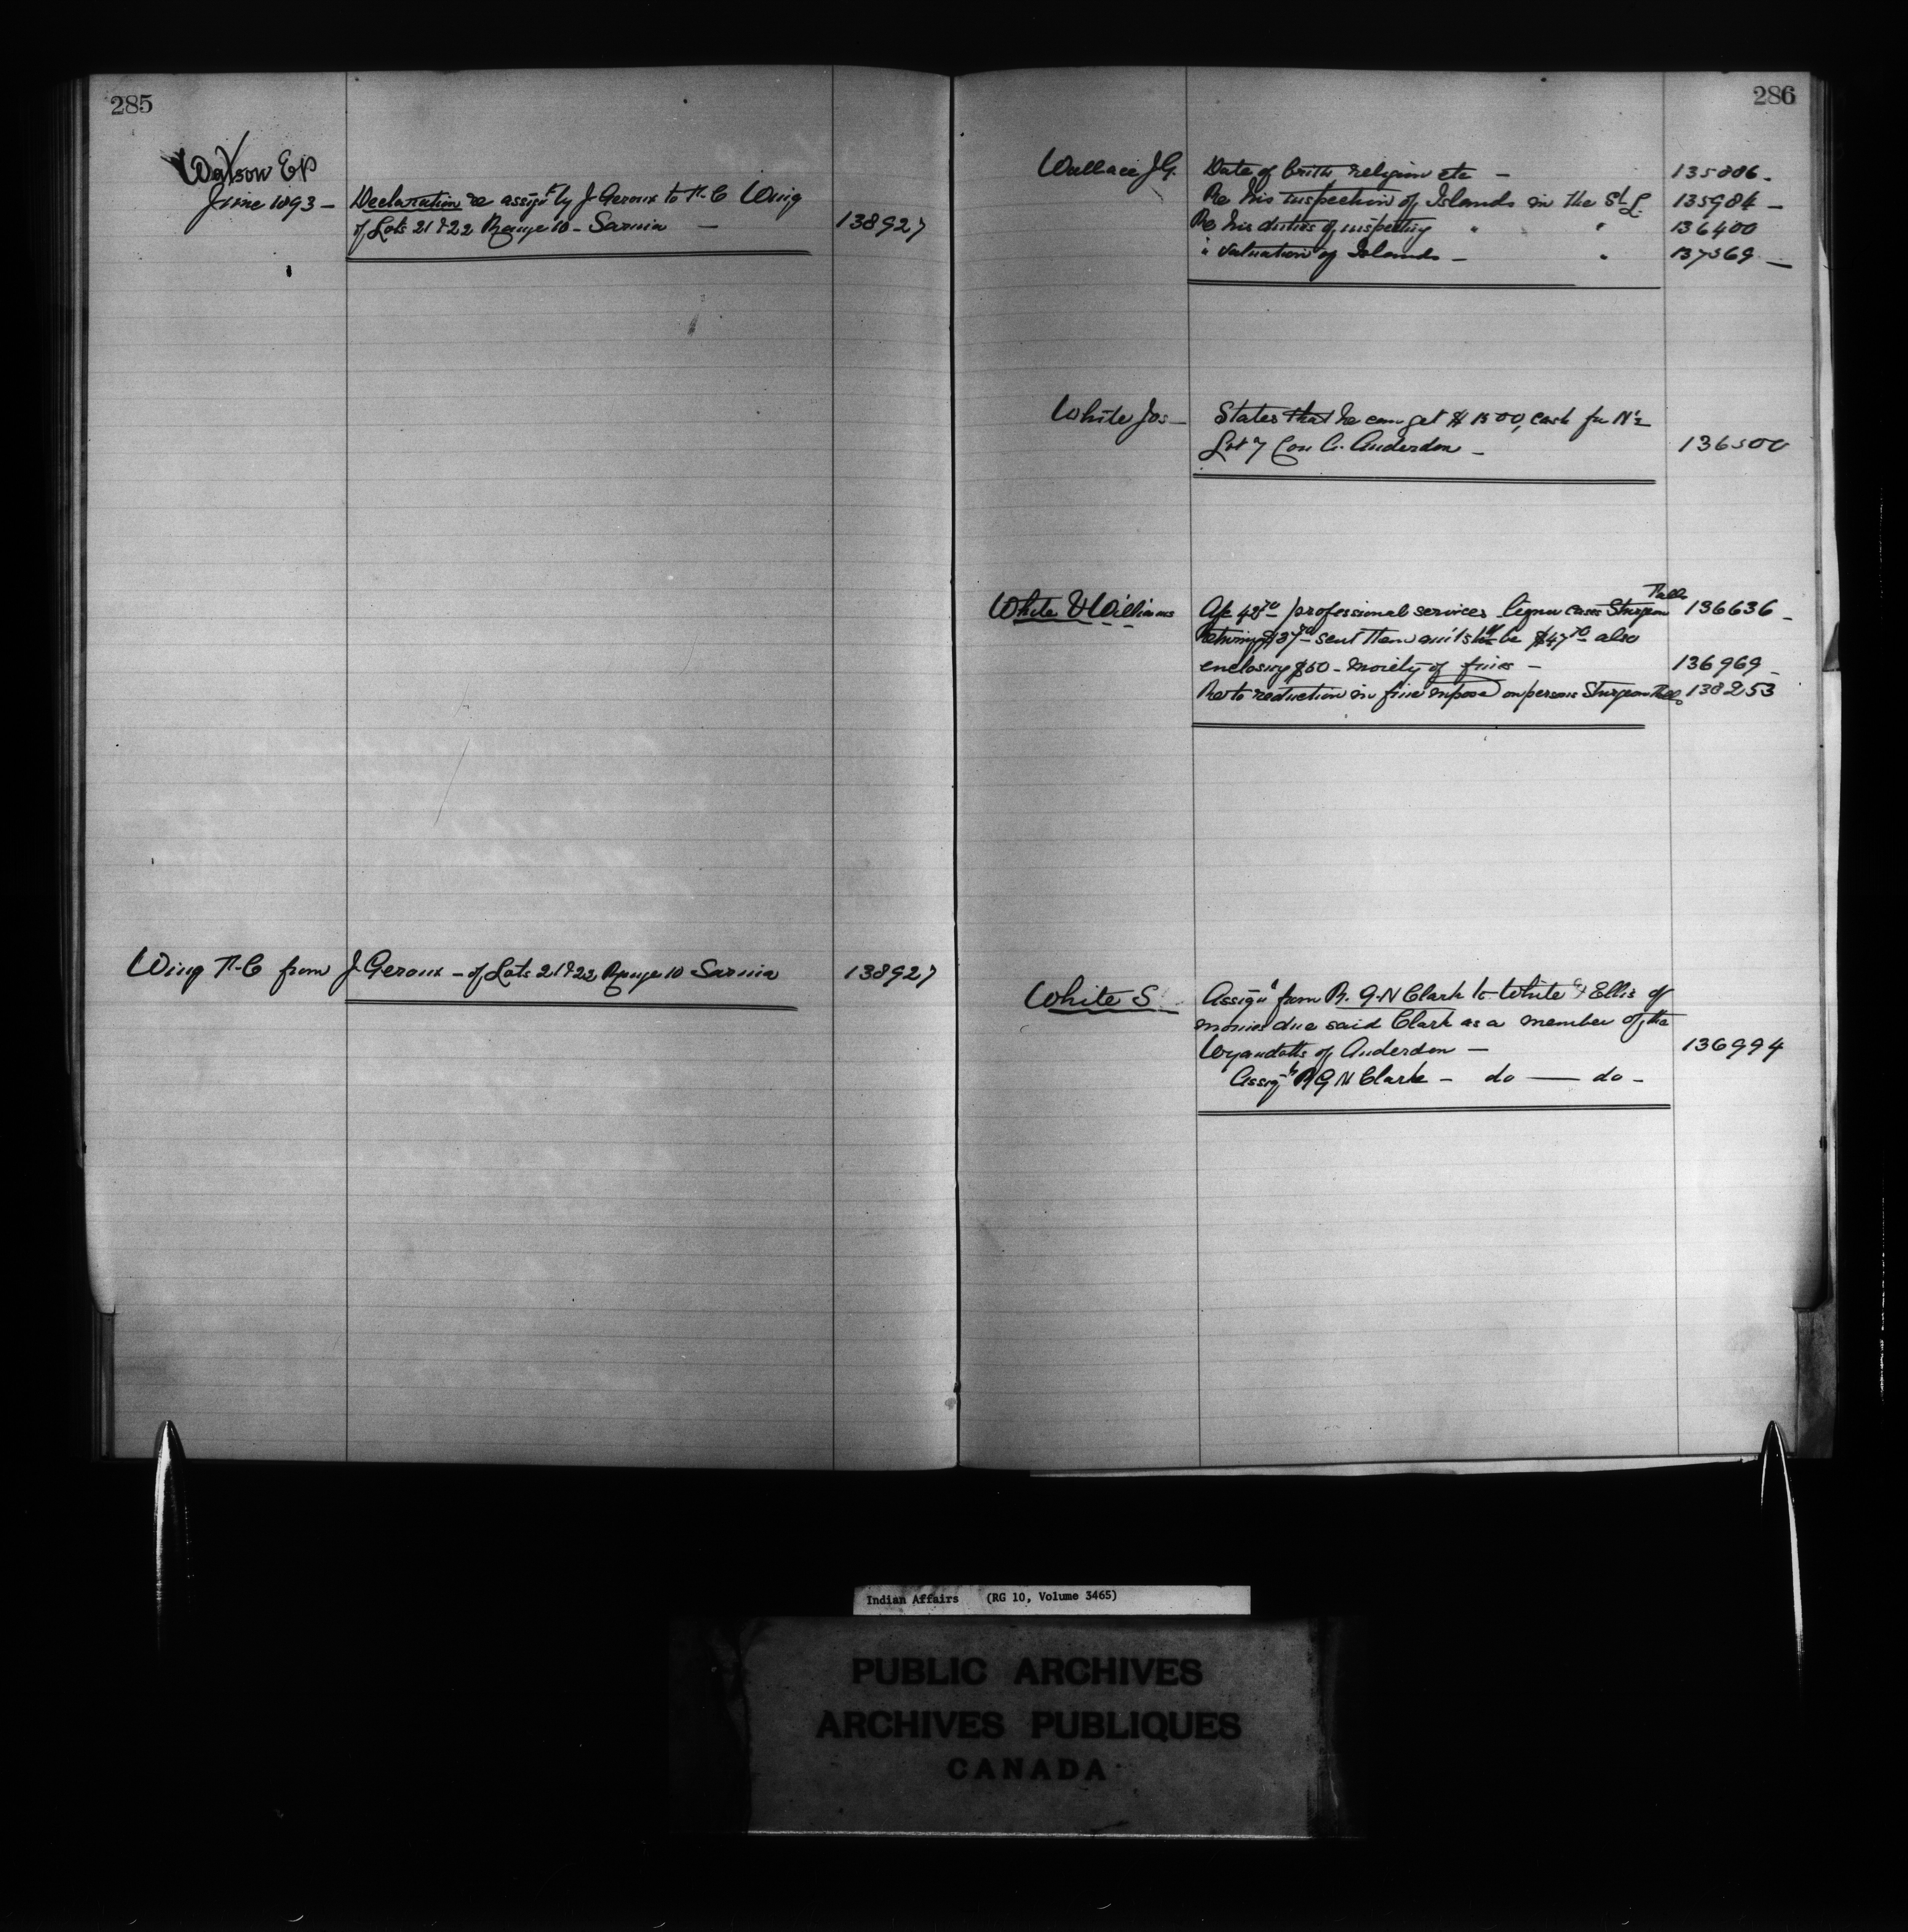 285
Watson E P
June 1893 –
Declaration re assigt by J. Geroux to T. C Wing
of Lots 21 & 22 Range 10 – Sarnia –
138927
Wing T. C from J. Geroux – of Lots 21 & 22 Range 10 Sarnia
138927
286
Wallace J. G. Date of birth, religion etc – 135886 –
Re his inspection of Islands in the St. L. 135984 –
Re his duties of inspecting " " 136400
" valuation of Islands – " 137569 –
White Jos – States that he can get $1500, cash for N½
Lot 7 Con C. Anderdon – 136500
White & Williams professional services liquor cases Sturgeon Falls 136636 –
sent them as it shd be $47.70 also
enclosing $50 – moiety of fines – 136969 –
to reduction in fine imposed on persons Sturgeon Falls 138253
White S Assignt from R. G. N Clark to White & Ellis of
monies due said Clark as a member of the
Wyandotts of Anderdon – 136994
Assigt R G N Clark – do — do –
Indian Affairs (RG 10, Volume 3465)
PUBLIC ARCHIVES
ARCHIVES PUBLIQUES
CANADA